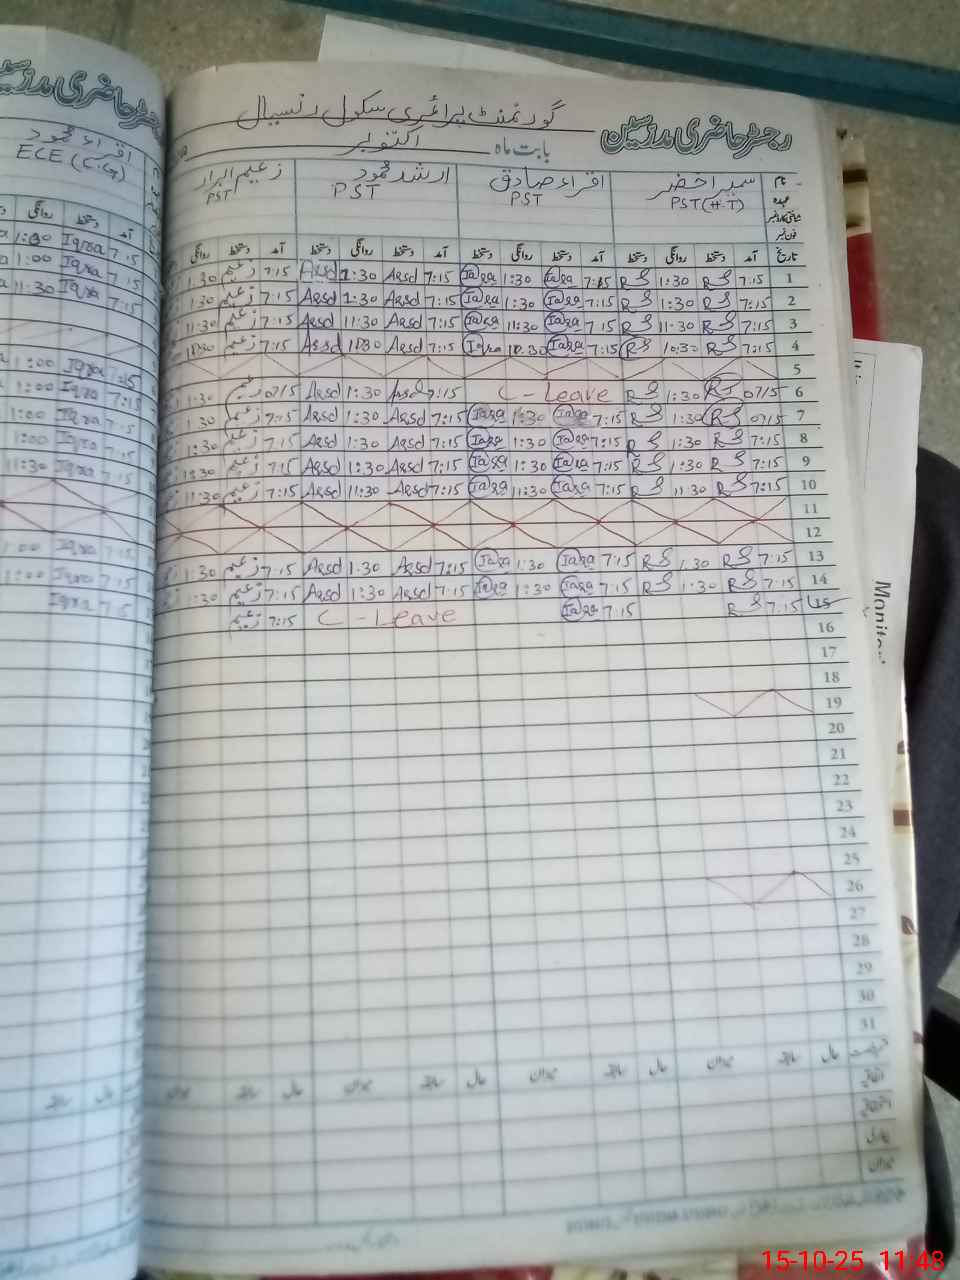 رجسٹر حاضری مدرسین
گورنمنٹ پرائمری سکول رنسیال
بابت ماہ اکتوبر
نام سمیرا خضر اقراء صادق ارشد محمود زعیم ابرار
عہدہ PST(H.T) PST PST PST
فون نمبر
تاریخ آمد دستخط روانگی دستخط آمد دستخط روانگی دستخط آمد دستخط روانگی دستخط آمد دستخط روانگی
1 7:15 RS 1:30 RS 7:15 Iqra 1:30 Iqra 7:15 Arsd 1:30 Arsd 7:15 زعیم 1:30
2 7:15 RS 1:30 RS 7:15 Iqra 1:30 Iqra 7:15 Arsd 1:30 Arsd 7:15 زعیم 1:30
3 7:15 RS 11:30 RS 7:15 Iqra 11:30 Iqra 7:15 Arsd 11:30 Arsd 7:15 زعیم 11:30
4 7:15 RS 10:30 RS 7:15 Iqra 10:30 Iqra 7:15 Arsd 10:30 Arsd 7:15 زعیم 10:30
5
6 07:15 RS 1:30 RS C-Leave 7:15 Arsd 1:30 Arsd 07:15 زعیم 1:30
7 07:15 RS 1:30 RS 7:15 Iqra 1:30 Iqra 7:15 Arsd 1:30 Arsd 7:15 زعیم 1:30
8 7:15 RS 1:30 RS 7:15 Iqra 1:30 Iqra 7:15 Arsd 1:30 Arsd 7:15 زعیم 1:30
9 7:15 RS 1:30 RS 7:15 Iqra 1:30 Iqra 7:15 Arsd 1:30 Arsd 7:15 زعیم
10 7:15 RS 11:30 RS 7:15 Iqra 11:30 Iqra 7:15 Arsd 11:30 Arsd 7:15 زعیم 11:30
11
12
13 7:15 RS 1:30 RS 7:15 Iqra 1:30 Iqra 7:15 Arsd 1:30 Arsd 7:15 زعیم 1:30
14 7:15 RS 1:30 RS 7:15 Iqra 1:30 Iqra 7:15 Arsd 1:30 Arsd 7:15 زعیم 1:30
15 7:15 RS 7:15 Iqra C-Leave 7:15 زعیم
16
17
18
19
20
21
22
23
24
25
26
27
28
29
30
31
حال سابقہ میزان حال سابقہ میزان حال سابقہ میزان
اتفاقیہ
بیماری
میزان
رجسٹر حاضری مدرسین
اقراء محمود
ECE (C.G)
آمد دستخط روانگی
7:15 Iqra 1:00
7:15 Iqra 1:00
7:15 Iqra 11:30
7:15 Iqra 1:00
7:15 Iqra 1:00
7:15 Iqra 1:00
7:15 Iqra 1:00
7:15 Iqra 11:30
7:15 Iqra 1:00
7:15 Iqra 1:00
7:15 Iqra
حال سابقہ
Monitor
15-10-25 11:48